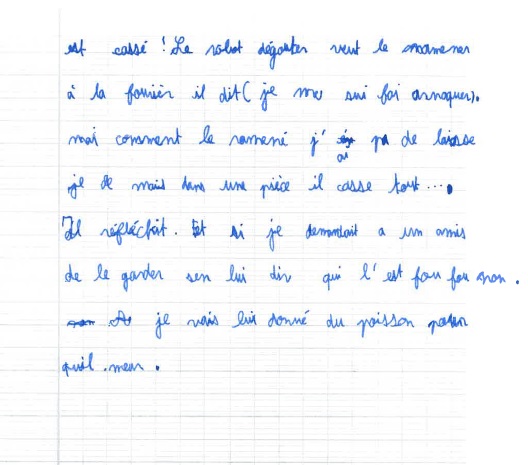 est cassé ! Le robot dégouter veut le ramener
à la fourrier il dit ( je me sui fai arnaquer ).
mai comment le ramené j' ai pa de laisse
je le mais dans une pièce il casse tout ... .
Il réfléchit. Et si je demandait a un amis
de le garder sen lui dir qui l'est fou fou non .
je vais lui donné du poisson pour
quil meur .